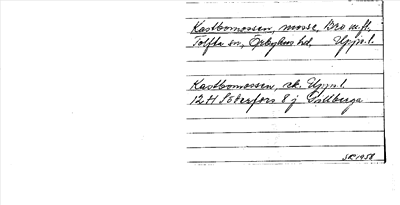 Kastbomossen, mosse, Bro m.fl.
Tolfta sn, Örbyhus hd, Upps. l.
Kastbomossen, ek. Upps. l.
12 H Söderfors 8 j Vallberga
SK 1958